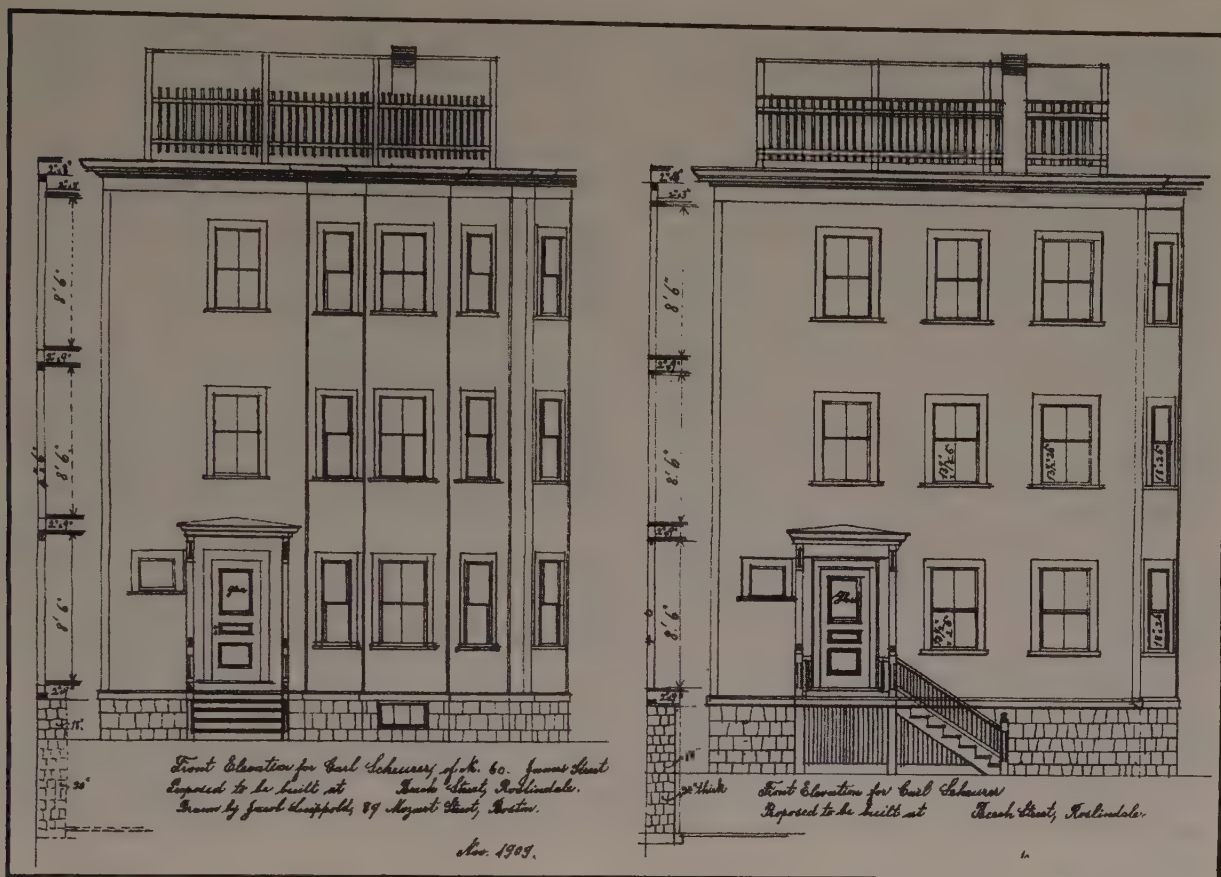 2"x8"
2"x8"
8'6"
2"x9"
8'6"
2"x9"
8'6"
2"x9"
18"
20"
Glass
Front Elevation for Carl Scheurer, of N. 60. James Street
Proposed to be built at Beech Street, Roslindale.
Drawn by Jacob Luippold, 89 Mozart Street, Boston.
Nov. 1909.
2"x8"
8'6"
2"x9"
8'6"
2"x9"
8'6"
2"x9"
18"
thick
Glass
Front Elevation for Carl Scheurer
Proposed to be built at Beech Street, Roslindale.